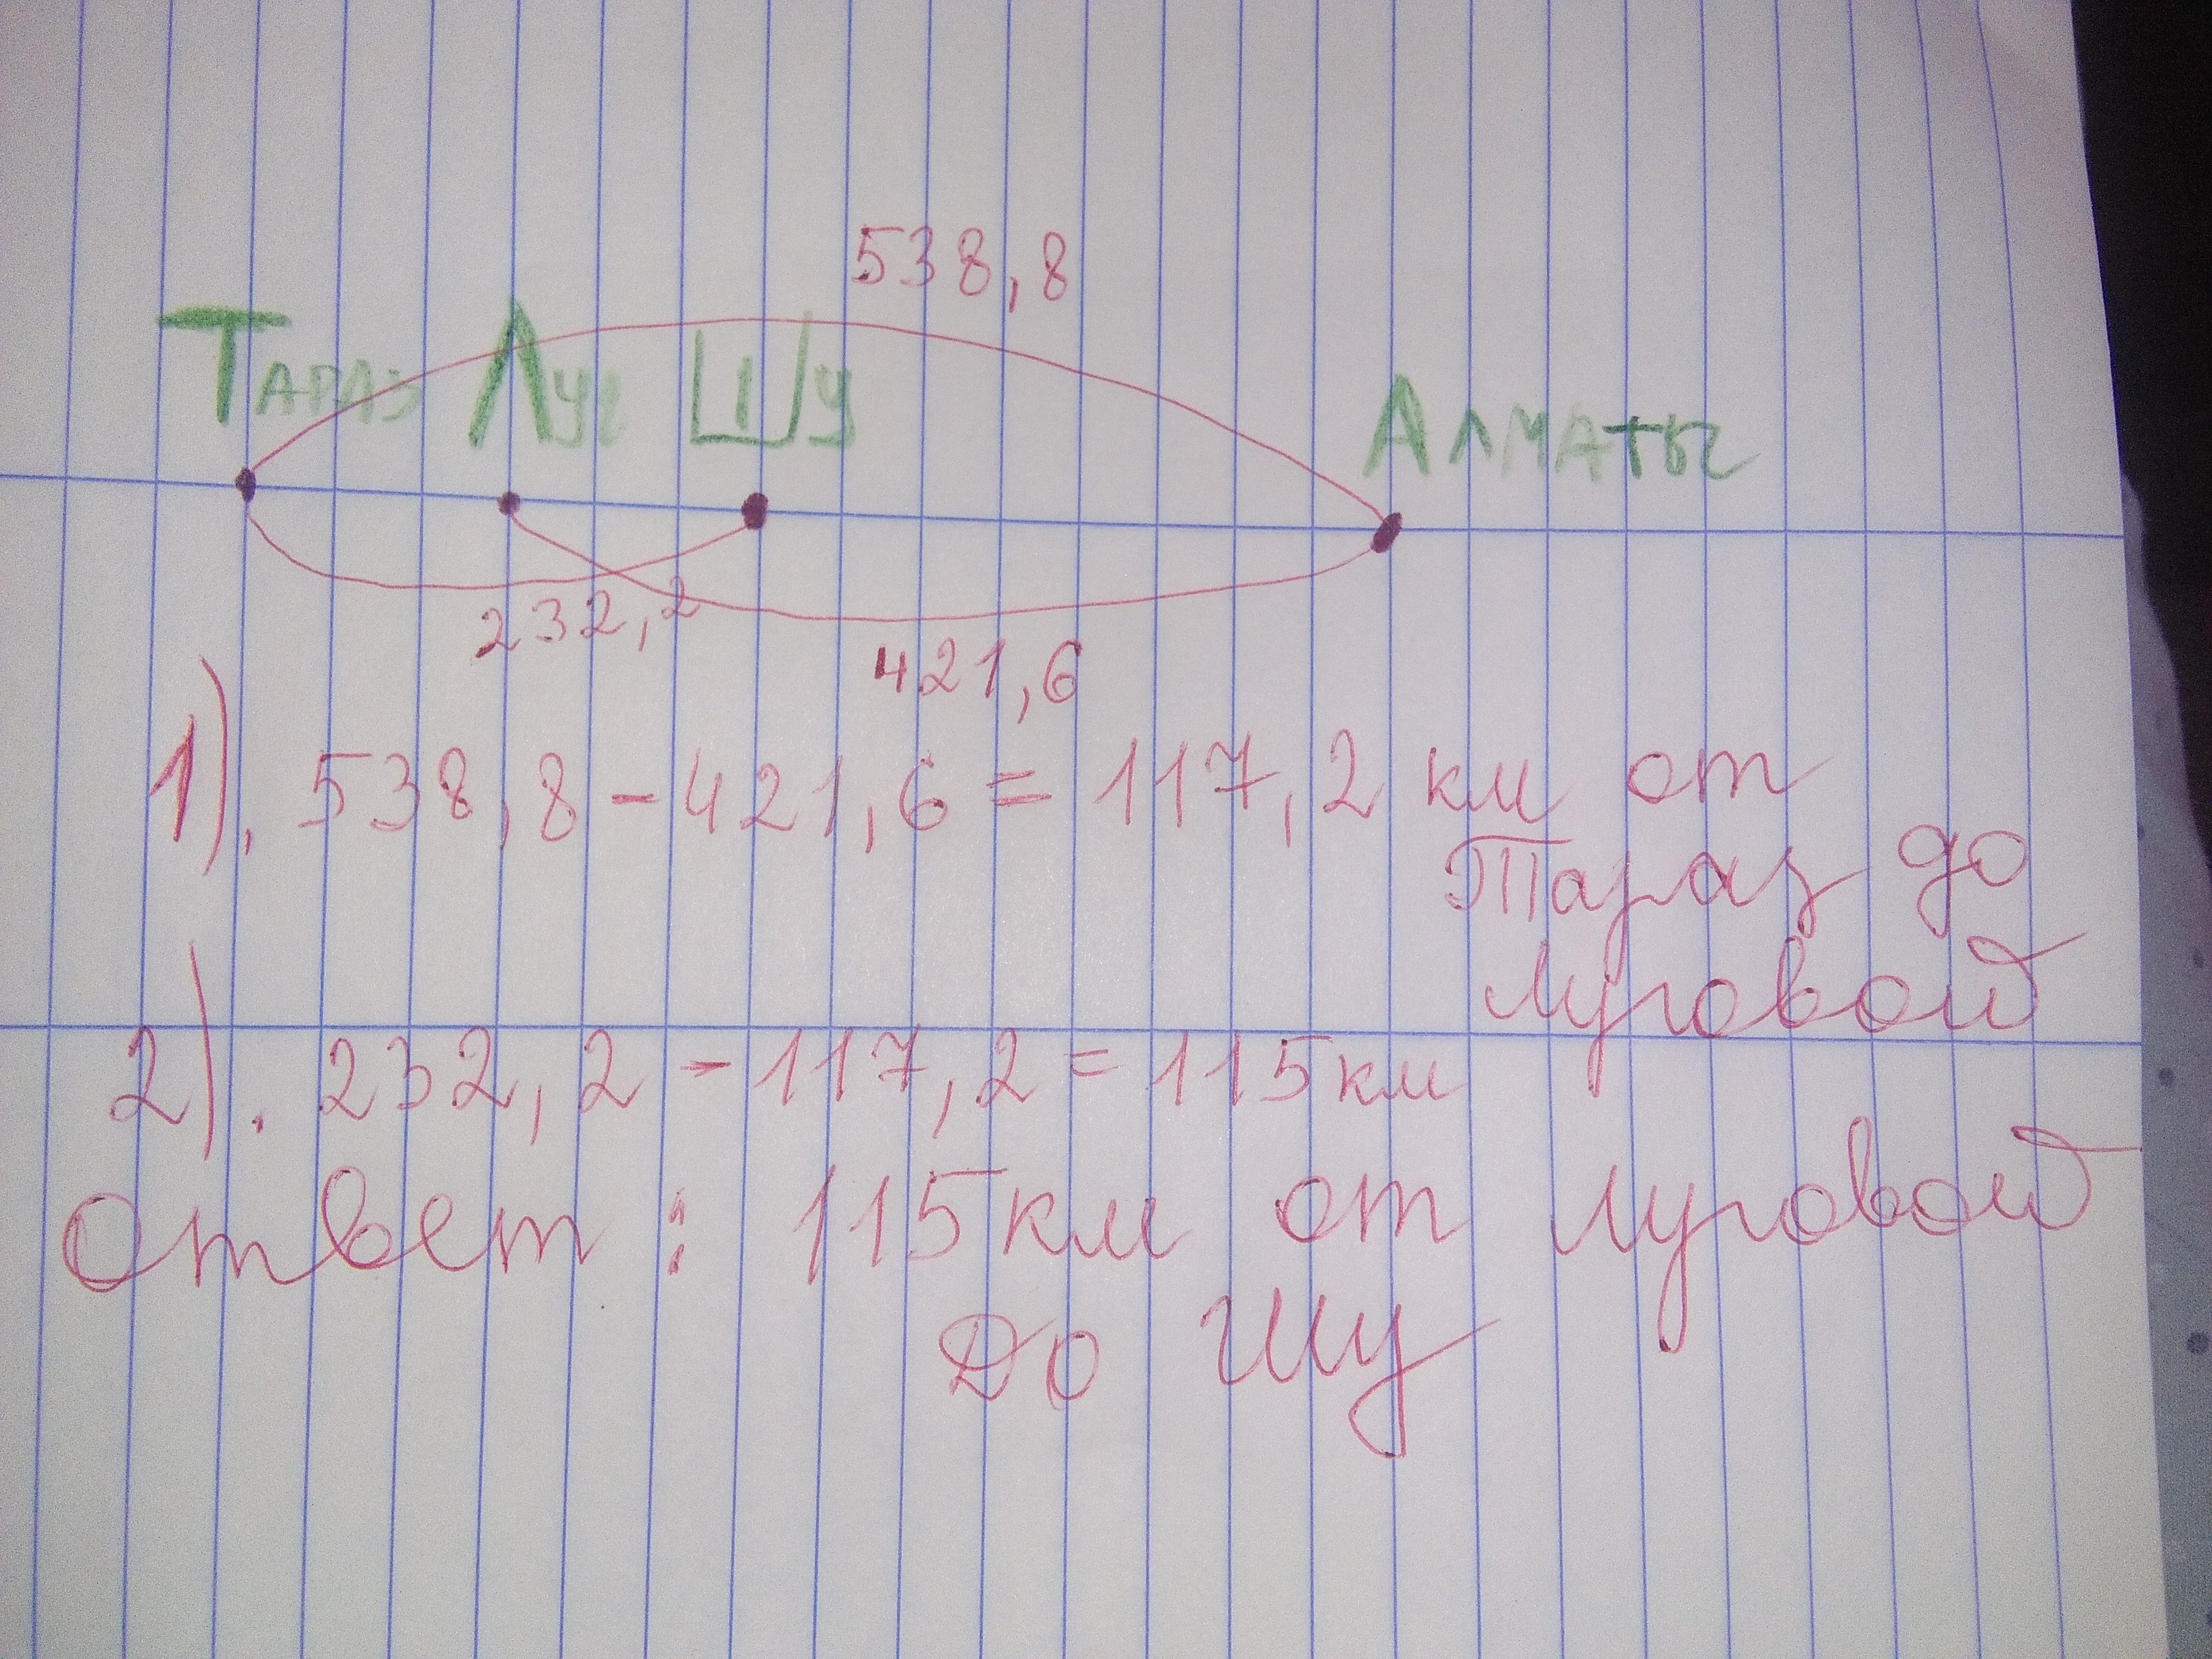 538,8
Тараз Луг Шу Алматы
232,2
421,6
1). 538,8 - 421,6 = 117,2 км от
Тараз до
Луговой
2). 232,2 - 117,2 = 115км
Ответ : 115км от Луговой
до Шу